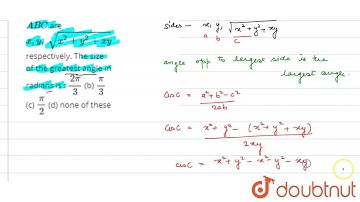 ABC are
x, y, √x² + y² + xy
respectively. The size
of the greatest angle in
radians is : 2π/3 (b) π/3
(c) π/2 (d) none of these
Sides — x, y, √x²+y²+xy
a b c
angle opp to largest side is the
largest angle.
cos C = a²+b²-c² / 2ab
cos C = x²+y² - (x²+y²+xy) / 2xy
cos C = x²+y²-x²-y²-xy
doubtnut